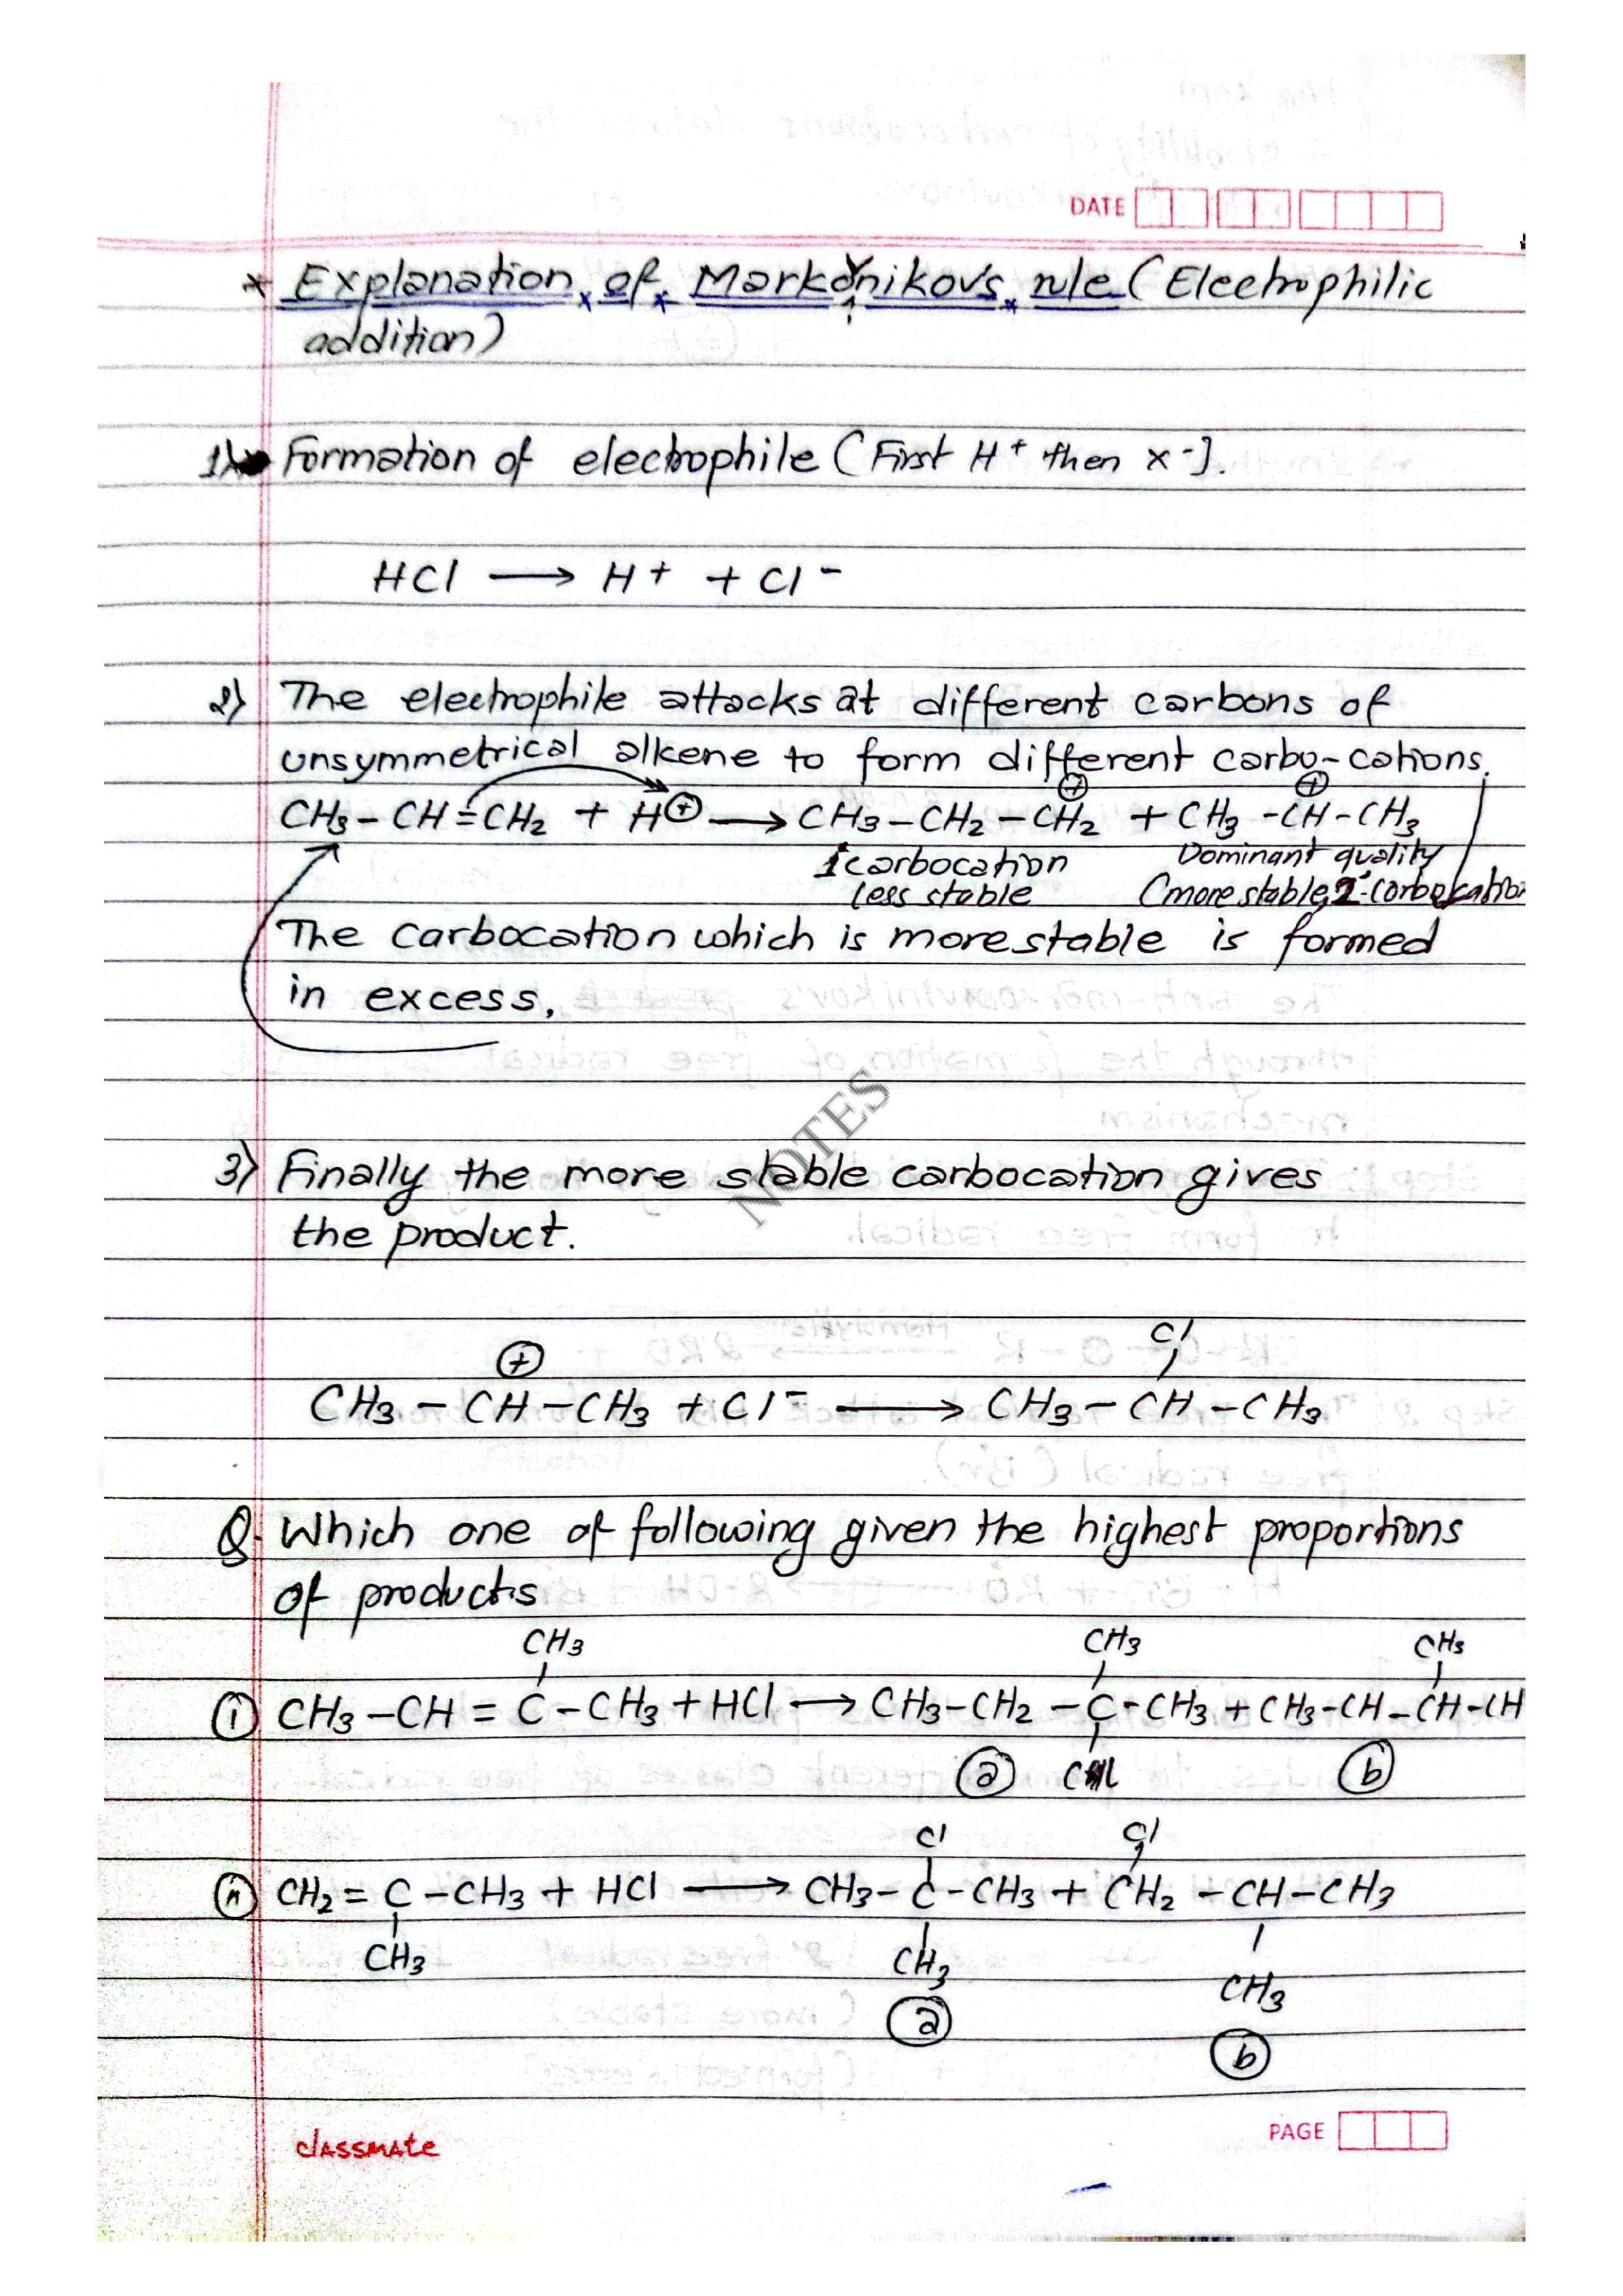 DATE
* Explanation of Markovnikov's rule (Electrophilic
addition)
1) Formation of electrophile (First H⁺ then X⁻].
HCl ⟶ H⁺ + Cl⁻
2) The electrophile attacks at different carbons of
unsymmetrical alkene to form different carbo-cations.
CH₃ – CH = CH₂ + H⊕ ⟶ CH₃ – CH₂ – CH₂⊕ + CH₃ - CH⊕ - CH₃
1° carbocation Dominant quality
less stable (more stable, 2° carbocation
The carbocation which is more stable is formed
in excess.
NOTES
3) Finally the more stable carbocation gives
the product.
⊕ Cl
CH₃ – CH – CH₃ + Cl⁻ ⟶ CH₃ – CH – CH₃
Q. Which one of following given the highest proportions
of products
CH₃ CH₃ CH₃
(i) CH₃ – CH = C – CH₃ + HCl ⟶ CH₃ – CH₂ – C - CH₃ + CH₃ - CH - CH - CH
(a) Cl (b)
Cl Cl
(ii) CH₂ = C – CH₃ + HCl ⟶ CH₃ – C - CH₃ + CH₂ – CH – CH₃
CH₃ CH₃ CH₃
(a) (b)
classmate
PAGE